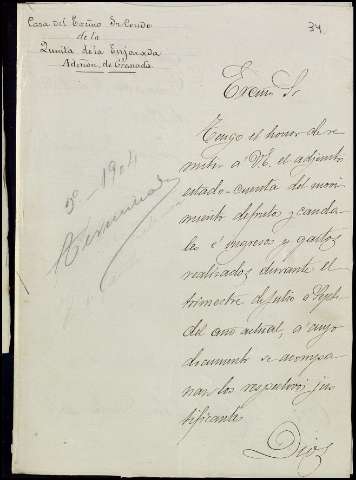 Casa del Excmo Sr Conde
de la
Quinta de la Enjarada
Admon. de Granada
34
Excmo Sr
Tengo el honor de re
mitir a VE. el adjunto
estado-cuenta del movi
miento de frutos y cauda
les é ingresos y gastos
realizados durante el
trimestre de Julio a Sepbre
del año actual, a cuyo
documento se acompa
ñan los respectivos jus
tificantes
Dios
1904